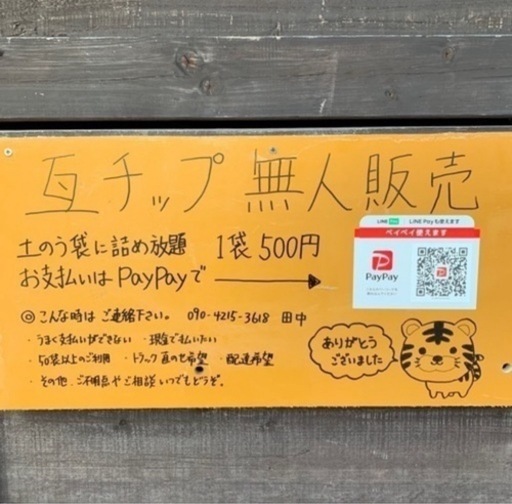 瓦チップ 無人販売
土のう袋に詰め放題 1袋 500円
お支払いは PayPayで
LINE Pay LINE Payも使えます
ペイペイ使えます
PayPay
◎ こんな時は ご連絡下さい。 090-4215-3618 田中
・うまく支払いができない ・現金で払いたい
・50袋以上のご利用 ・トラック直のせ希望 ・配達希望
・その他、ご不明点やご相談いつでもどうぞ。
ありがとう
ございました